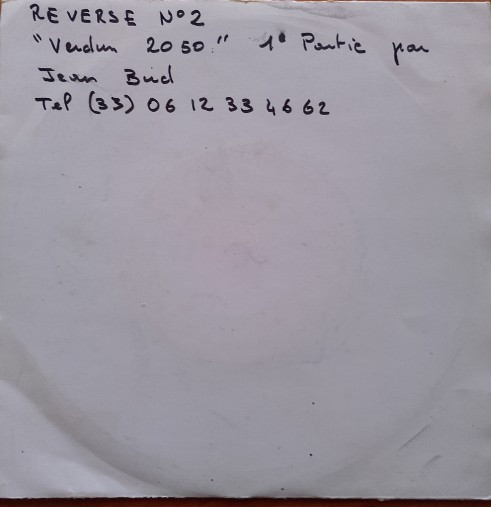 REVERSE N°2
"Verdun 2050." 1° Partie par
Jean Bud
Tel (33) 06 12 33 46 62